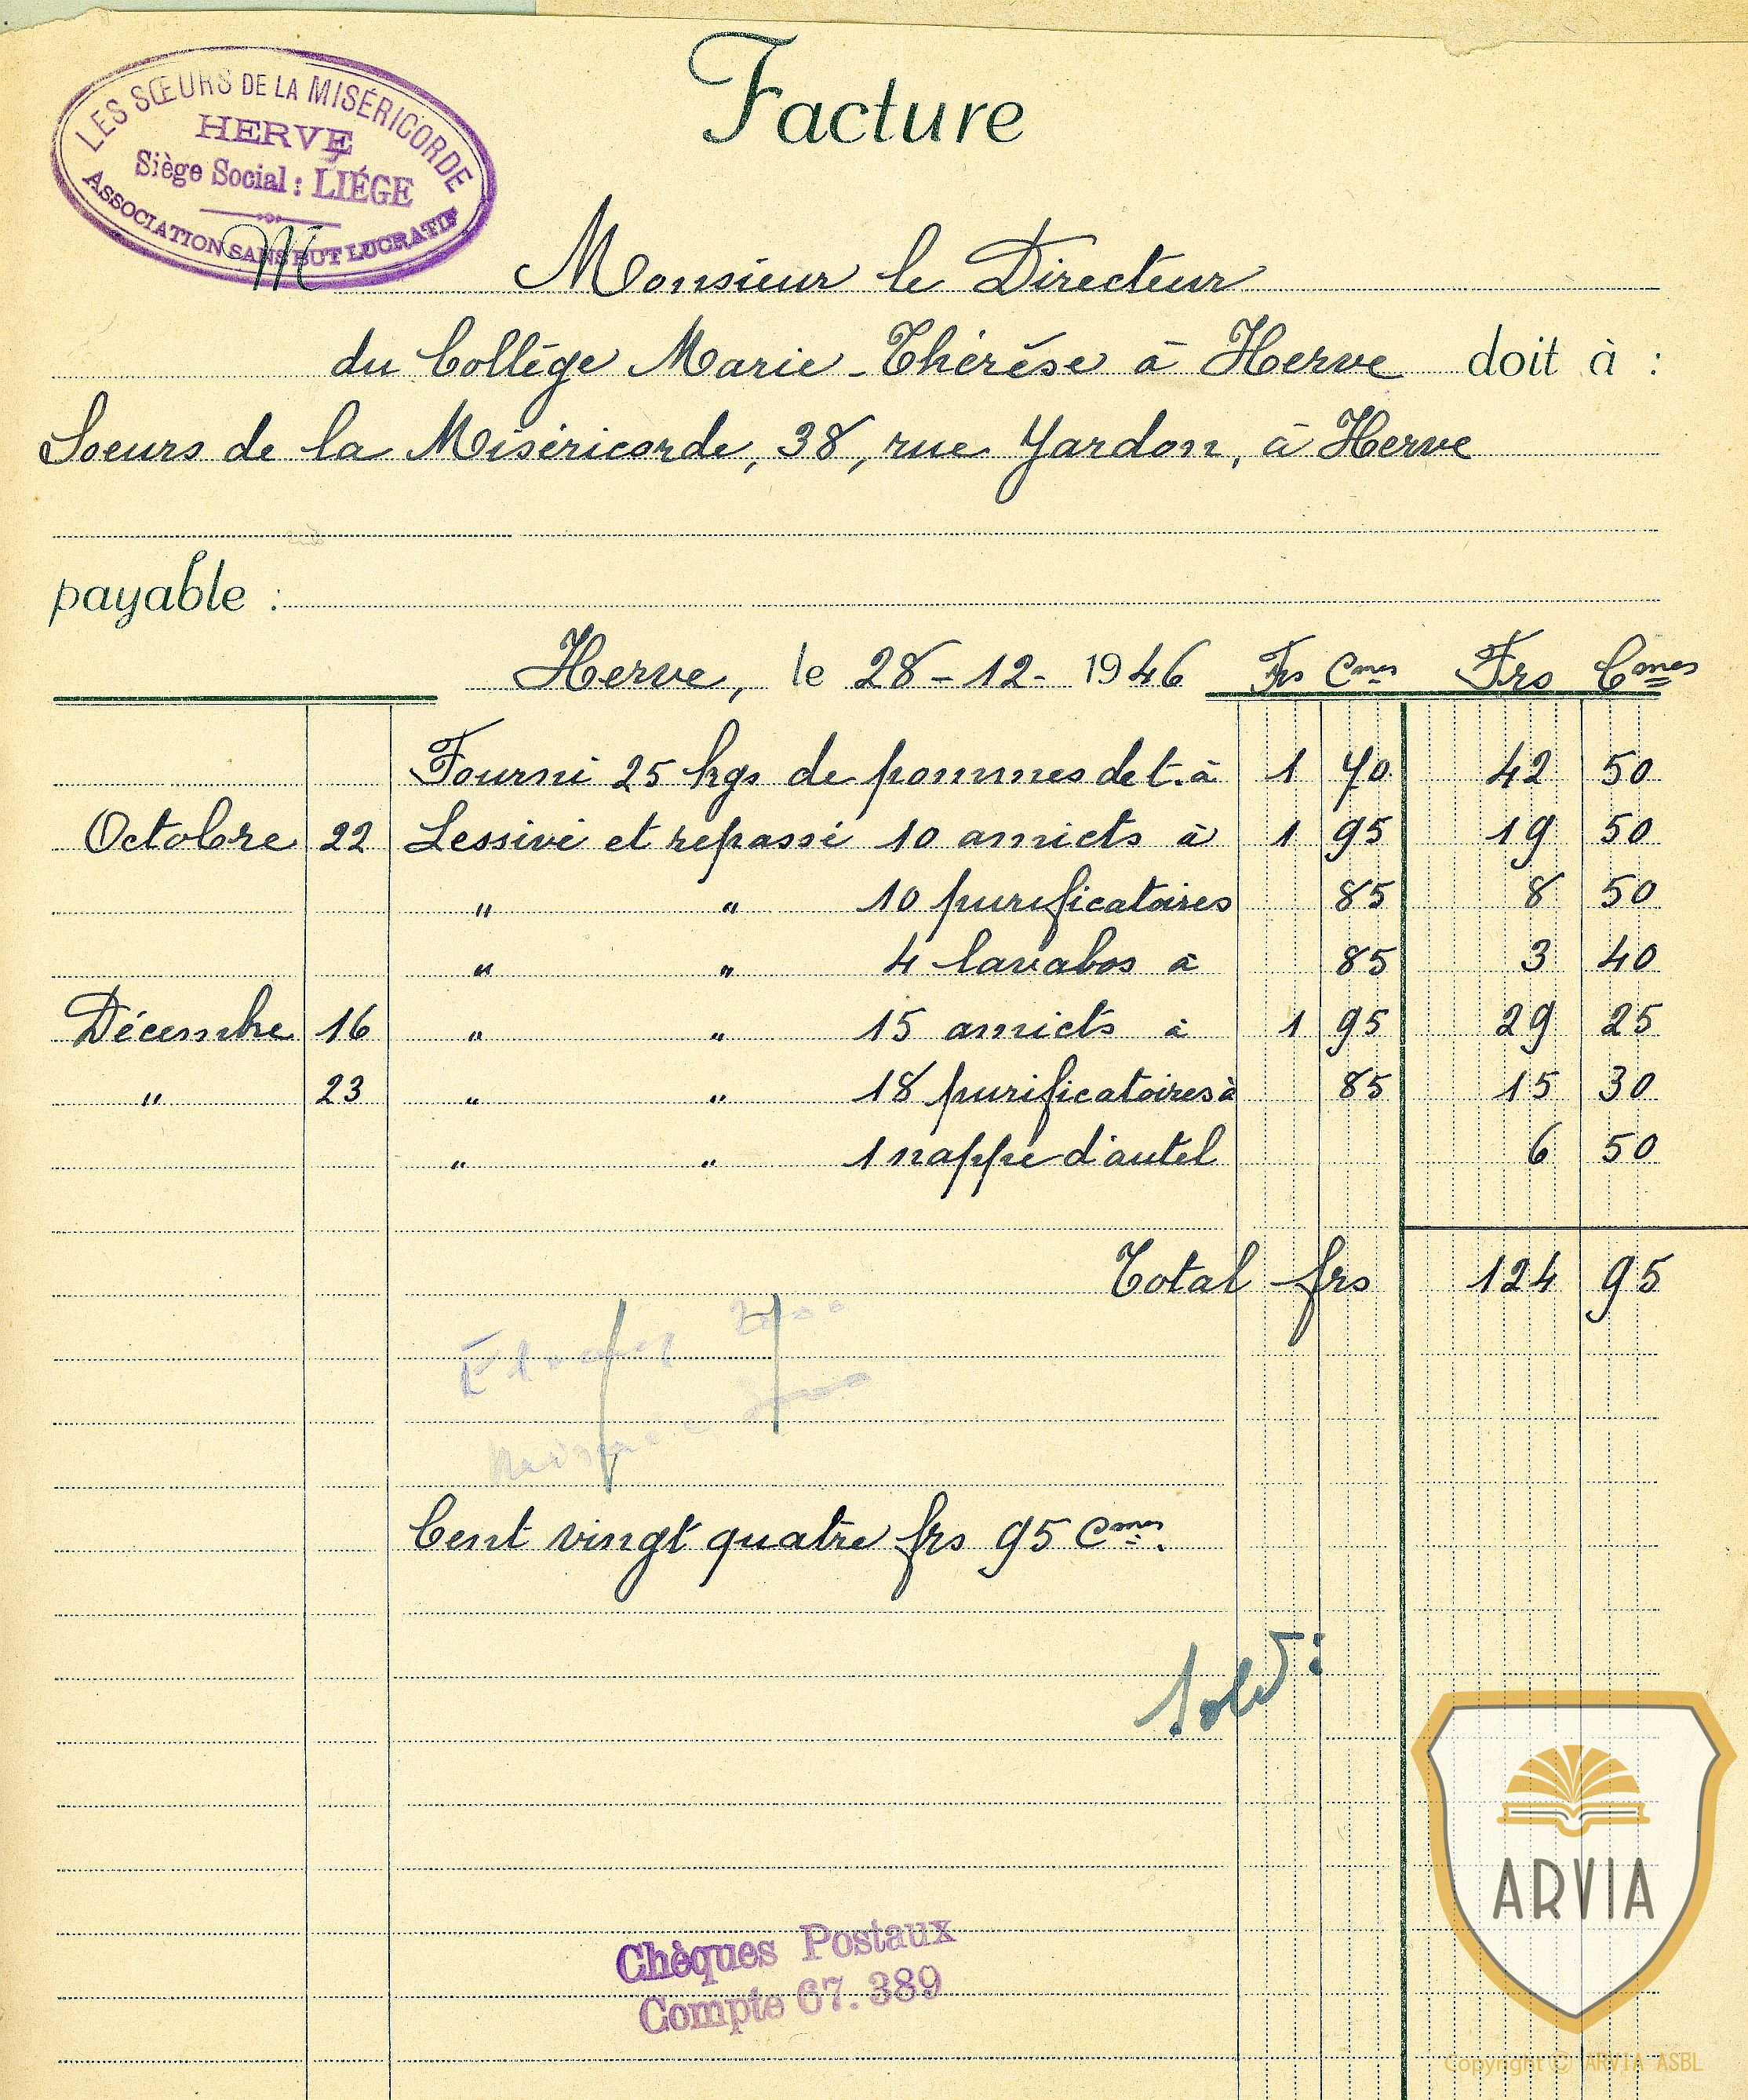 Facture
LES SŒURS DE LA MISÉRICORDE
HERVE
Siège Social : LIÉGE
ASSOCIATION SANS BUT LUCRATIF
M Monsieur le Directeur
du Collège Marie-Thérèse à Herve doit à :
Soeurs de la Miséricorde, 38, rue Yardon, à Herve
payable :
Herve, le 28-12-1946 Frs Cmes Frs Cmes
Fourni 25 kgs de pommes de t. à 1 70 42 50
Octobre 22 Lessivé et repassé 10 amicts à 1 95 19 50
" " 10 purificatoires 85 8 50
" " 4 lavabos à 85 3 40
Décembre 16 " " 15 amicts à 1 95 29 25
" 23 " " 18 purificatoires à 85 15 30
" " 1 nappe d'autel 6 50
Total frs 124 95
Cent vingt quatre frs 95 Cmes.
Chèques Postaux
Compte 67.389
ARVIA
Copyright © ARVIA ASBL